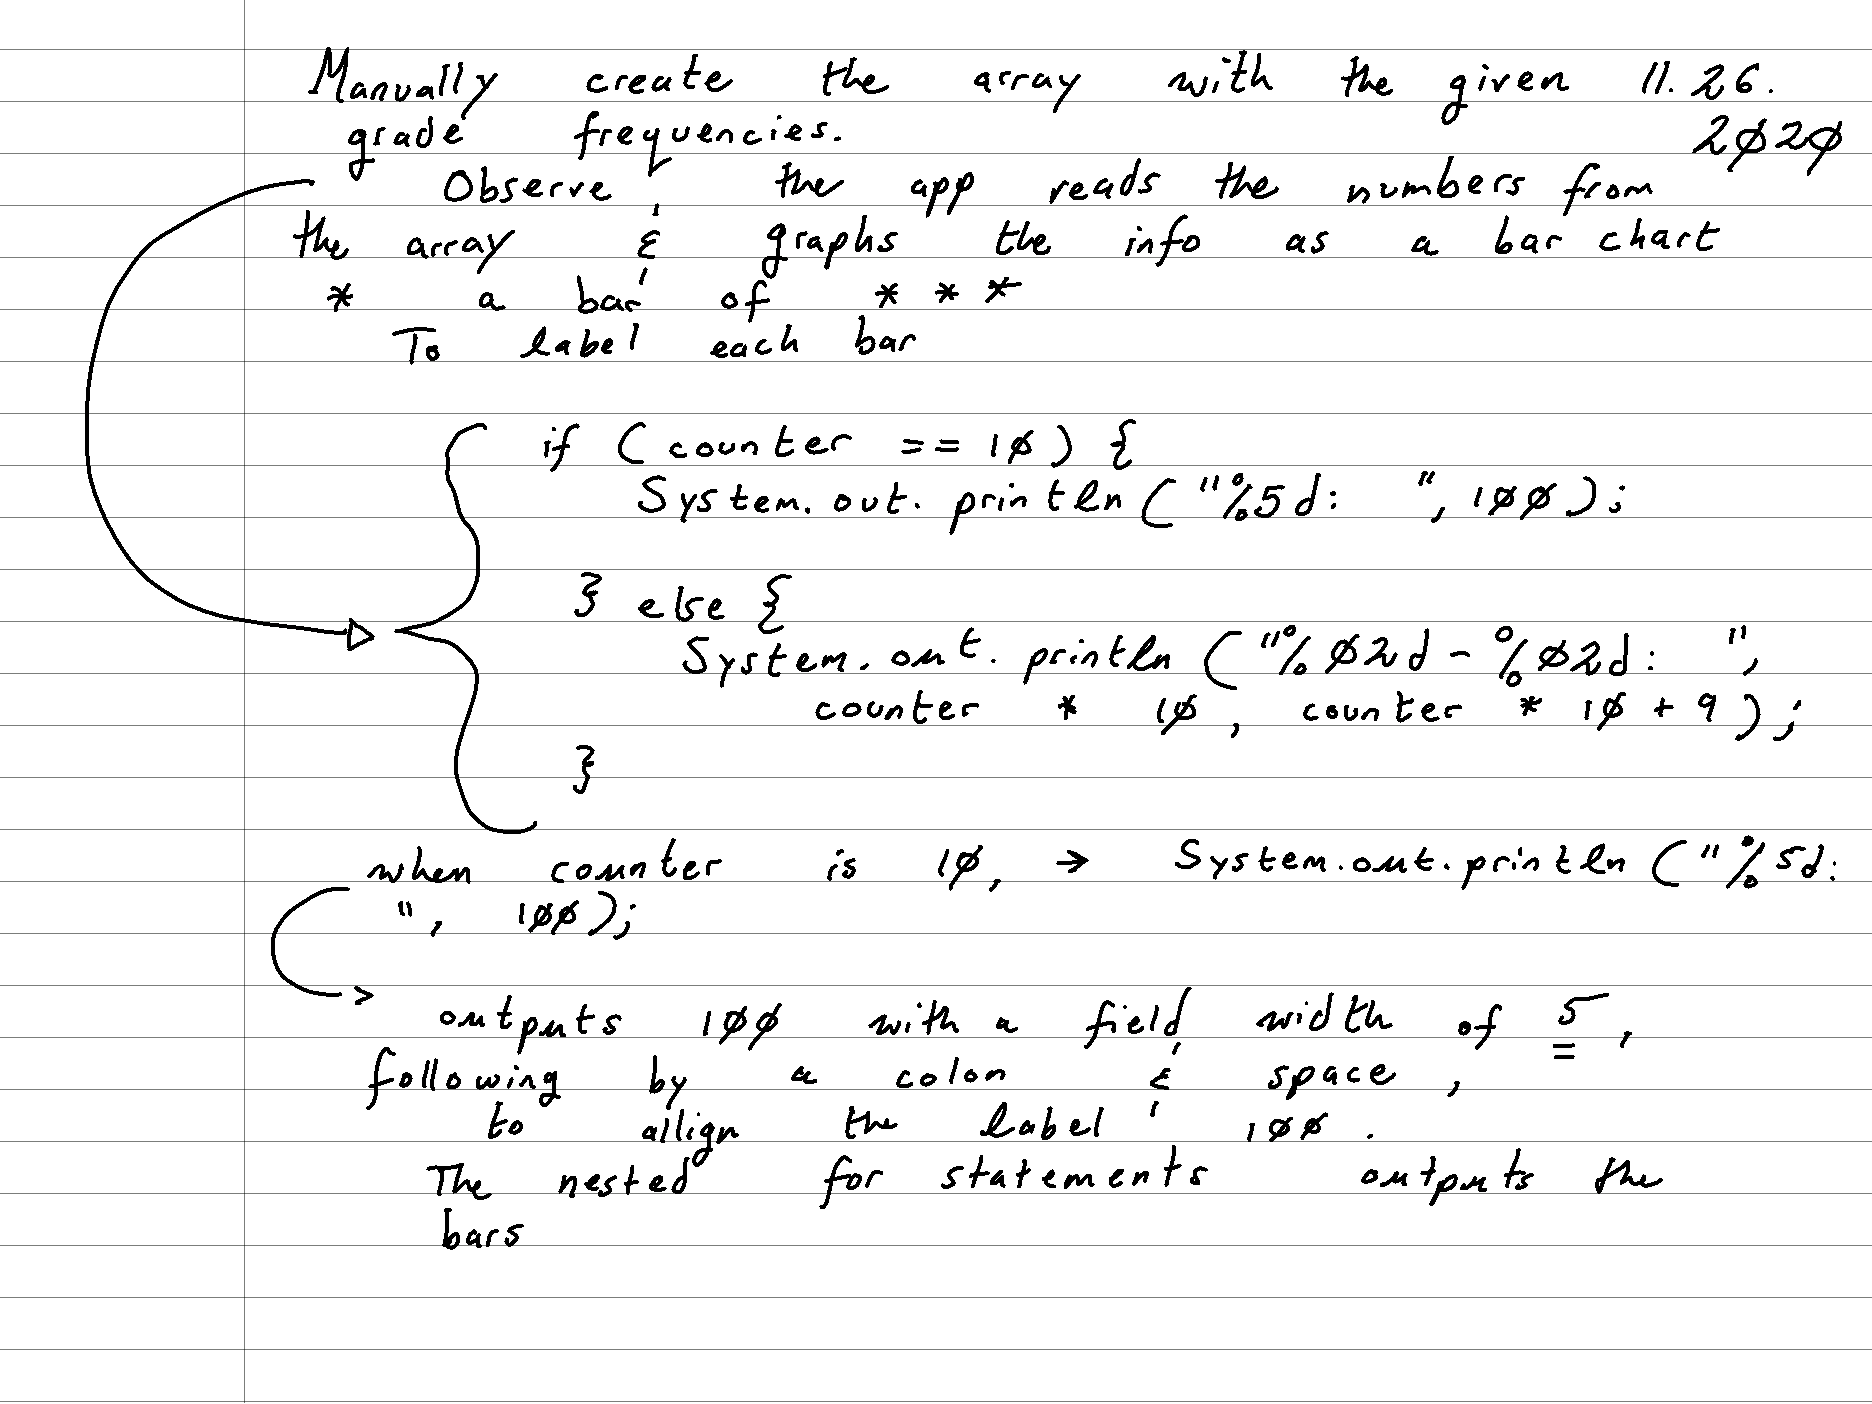 Manually create the array with the given 11.26.
grade frequencies. 2020
Observe, the app reads the numbers from
the array & graphs the info as a bar chart
* a bar of * * *
To label each bar
if (counter == 10) {
System.out.println("%5d: ", 100);
} else {
System.out.println("%02d-%02d: ",
counter * 10, counter * 10 + 9);
}
when counter is 10, → System.out.println("%5d:
", 100);
outputs 100 with a field width of 5,
following by a colon & space,
to allign the label 100.
The nested for statements outputs the
bars